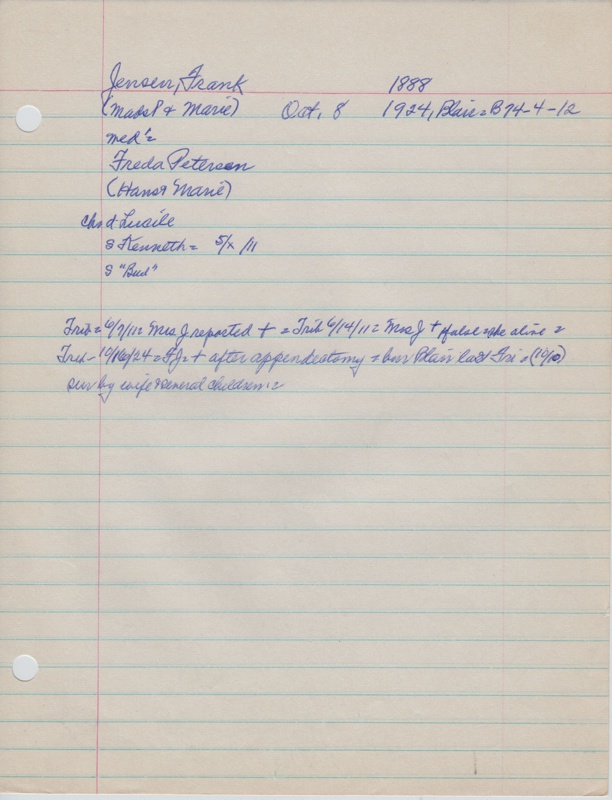 Jensen, Frank 1888
(Mads P & Marie) Oct. 8 1924, Blair = B74-4-12
med' =
Freda Petersen
(Hans & Marie)
chn d Lucile
s Kenneth = 5/x /11
s "Bud"
Trib = 6/7/11 = Mrs J reported + = Trib 6/14/11 = Mrs J + false = she alive =
Trib - 10/16/24 = FJ = + after appendectomy = bur Blair last Fri = (10/10)
sur by wife & several children =